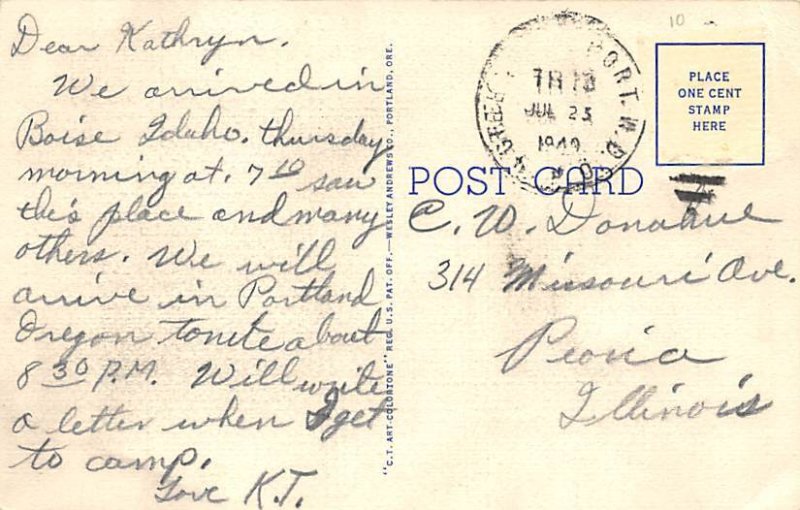 Dear Kathryn.
We arrived in
Boise Idaho. thursday
morning at. 7 10 saw
this place and many
others. We will
arrive in Portland
Oregon tonite about
8 30 P.M. Will write
a letter when I get
to camp.
Love K.T.
"C.T. ART-COLORTONE" REG. U.S. PAT. OFF.—WESLEY ANDREWS CO., PORTLAND, ORE.
10
PORT. W.D.
TR 13
JUL 23
1949
PLACE
ONE CENT
STAMP
HERE
POST CARD
C. W. Donahue
314 Missouri Ave.
Peoria
Illinois